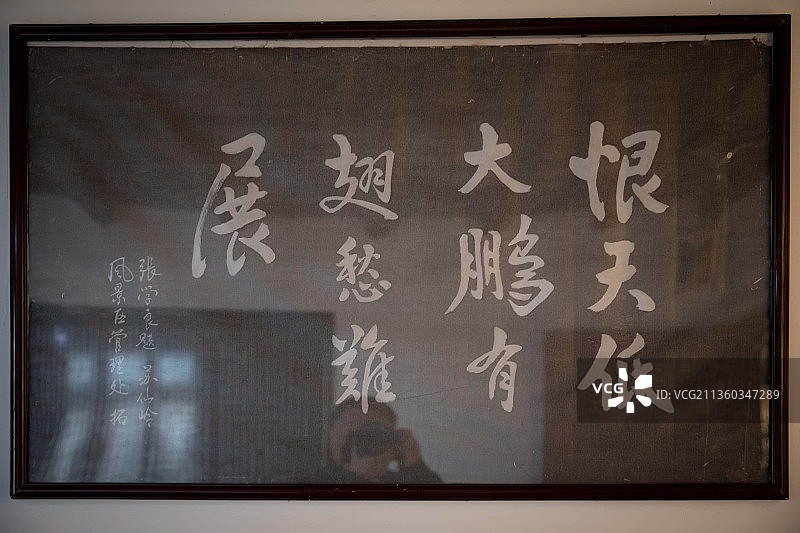 恨天低
大鹏有
翅愁難
展
張学良题 苏仙岭
风景区管理处 拓
VCG
ID: VCG211360347289